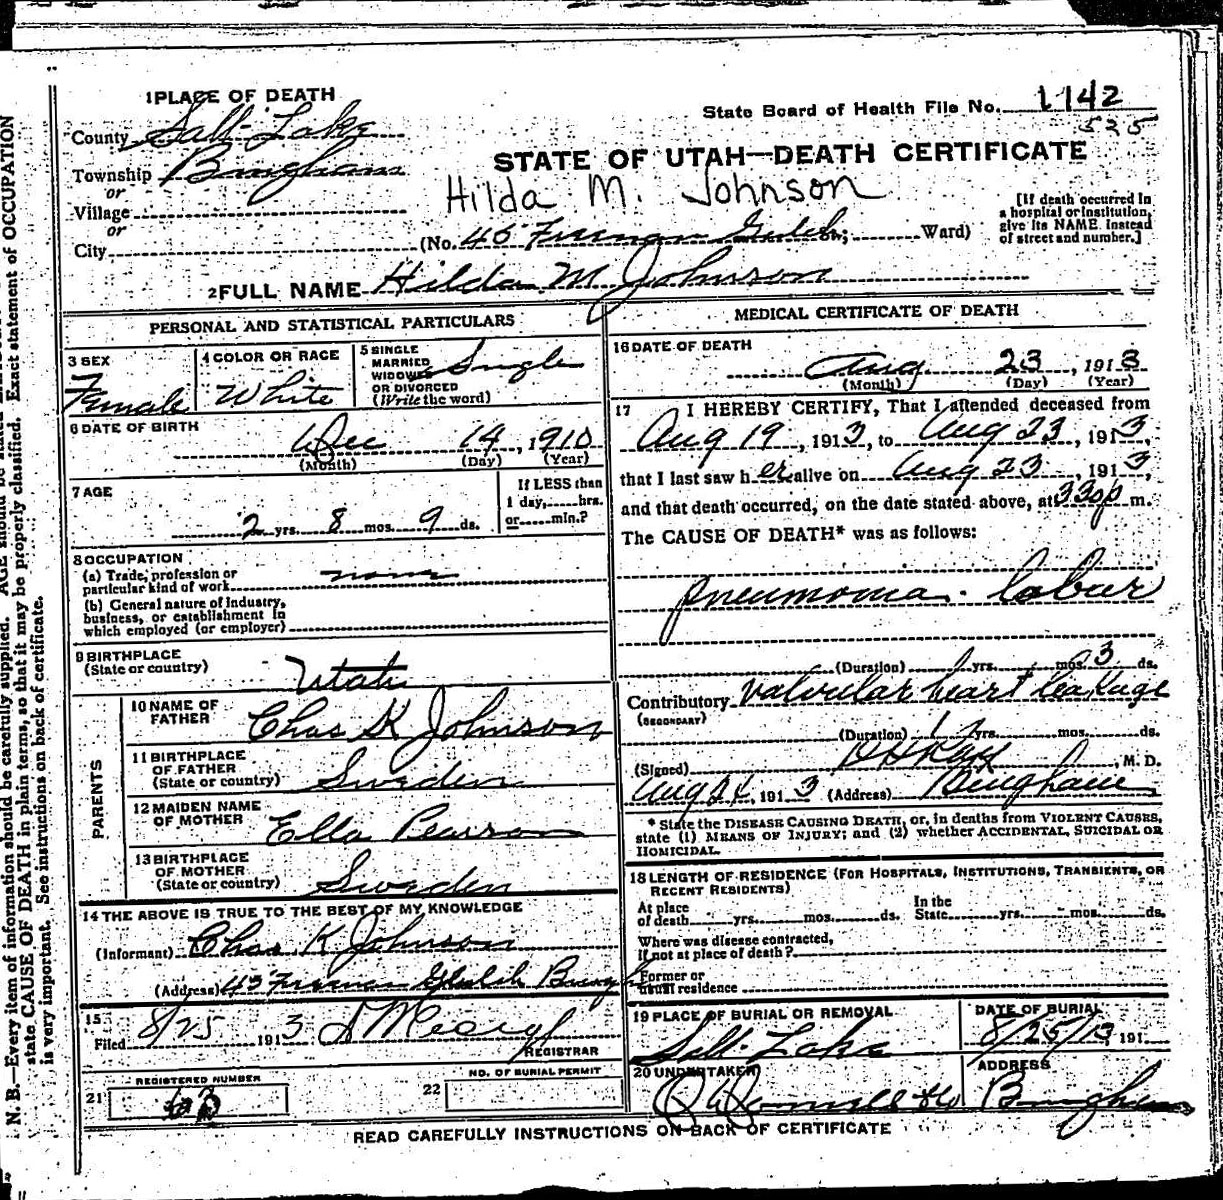 1 PLACE OF DEATH
State Board of Health File No. 1142
525
County Salt Lake
Township Bingham
or
Village
or
City
STATE OF UTAH—DEATH CERTIFICATE
Hilda M. Johnson
(No. 45 Freeman Gulch St; Ward)
[If death occurred in
a hospital or institution,
give its NAME instead
of street and number.]
2 FULL NAME Hilda M Johnson
PERSONAL AND STATISTICAL PARTICULARS
3 SEX
Female
4 COLOR OR RACE
White
5 SINGLE
MARRIED
WIDOWED
OR DIVORCED
(Write the word)
Single
6 DATE OF BIRTH
Dec 14, 1910
(Month) (Day) (Year)
7 AGE
2 yrs. 8 mos. 9 ds.
If LESS than
1 day, hrs.
or min.?
8 OCCUPATION
(a) Trade, profession or
particular kind of work none
(b) General nature of industry,
business, or establishment in
which employed (or employer)
9 BIRTHPLACE
(State or country)
Utah
PARENTS
10 NAME OF
FATHER
Chas K Johnson
11 BIRTHPLACE
OF FATHER
(State or country) Sweden
12 MAIDEN NAME
OF MOTHER
Ella Pearson
13 BIRTHPLACE
OF MOTHER
(State or country) Sweden
14 THE ABOVE IS TRUE TO THE BEST OF MY KNOWLEDGE
(Informant) Chas K Johnson
(Address) 45 Freeman Gulch Bingh
15
Filed 8/25 1913
REGISTRAR
REGISTERED NUMBER
21
22
NO. OF BURIAL PERMIT
MEDICAL CERTIFICATE OF DEATH
16 DATE OF DEATH
Aug 23, 1913
(Month) (Day) (Year)
17 I HEREBY CERTIFY, That I attended deceased from
Aug 19, 1913, to Aug 23, 1913,
that I last saw her alive on Aug 23, 1913,
and that death occurred, on the date stated above, at 330p m.
The CAUSE OF DEATH* was as follows:
pneumonia. lobar
(Duration) yrs. mos. 3 ds.
Contributory valvular heart leakage
(SECONDARY)
(Duration) yrs. mos. ds.
(Signed) , M. D.
Aug 24, 1913 (Address) Bingham
* State the DISEASE CAUSING DEATH, or, in deaths from VIOLENT CAUSES,
state (1) MEANS OF INJURY; and (2) whether ACCIDENTAL, SUICIDAL OR
HOMICIDAL.
18 LENGTH OF RESIDENCE (FOR HOSPITALS, INSTITUTIONS, TRANSIENTS, OR
RECENT RESIDENTS)
At place
of death yrs. mos. ds.
In the
State yrs. mos. ds.
Where was disease contracted,
if not at place of death?
Former or
usual residence
19 PLACE OF BURIAL OR REMOVAL
Salt Lake
DATE OF BURIAL
8/25/13, 191
20 UNDERTAKER
ADDRESS
Bingham
READ CAREFULLY INSTRUCTIONS ON BACK OF CERTIFICATE
N. B.—Every item of information should be carefully supplied. AGE should be stated
state CAUSE OF DEATH in plain terms, so that it may be properly classified. Exact statement of OCCUPATION
is very important. See instructions on back of certificate.